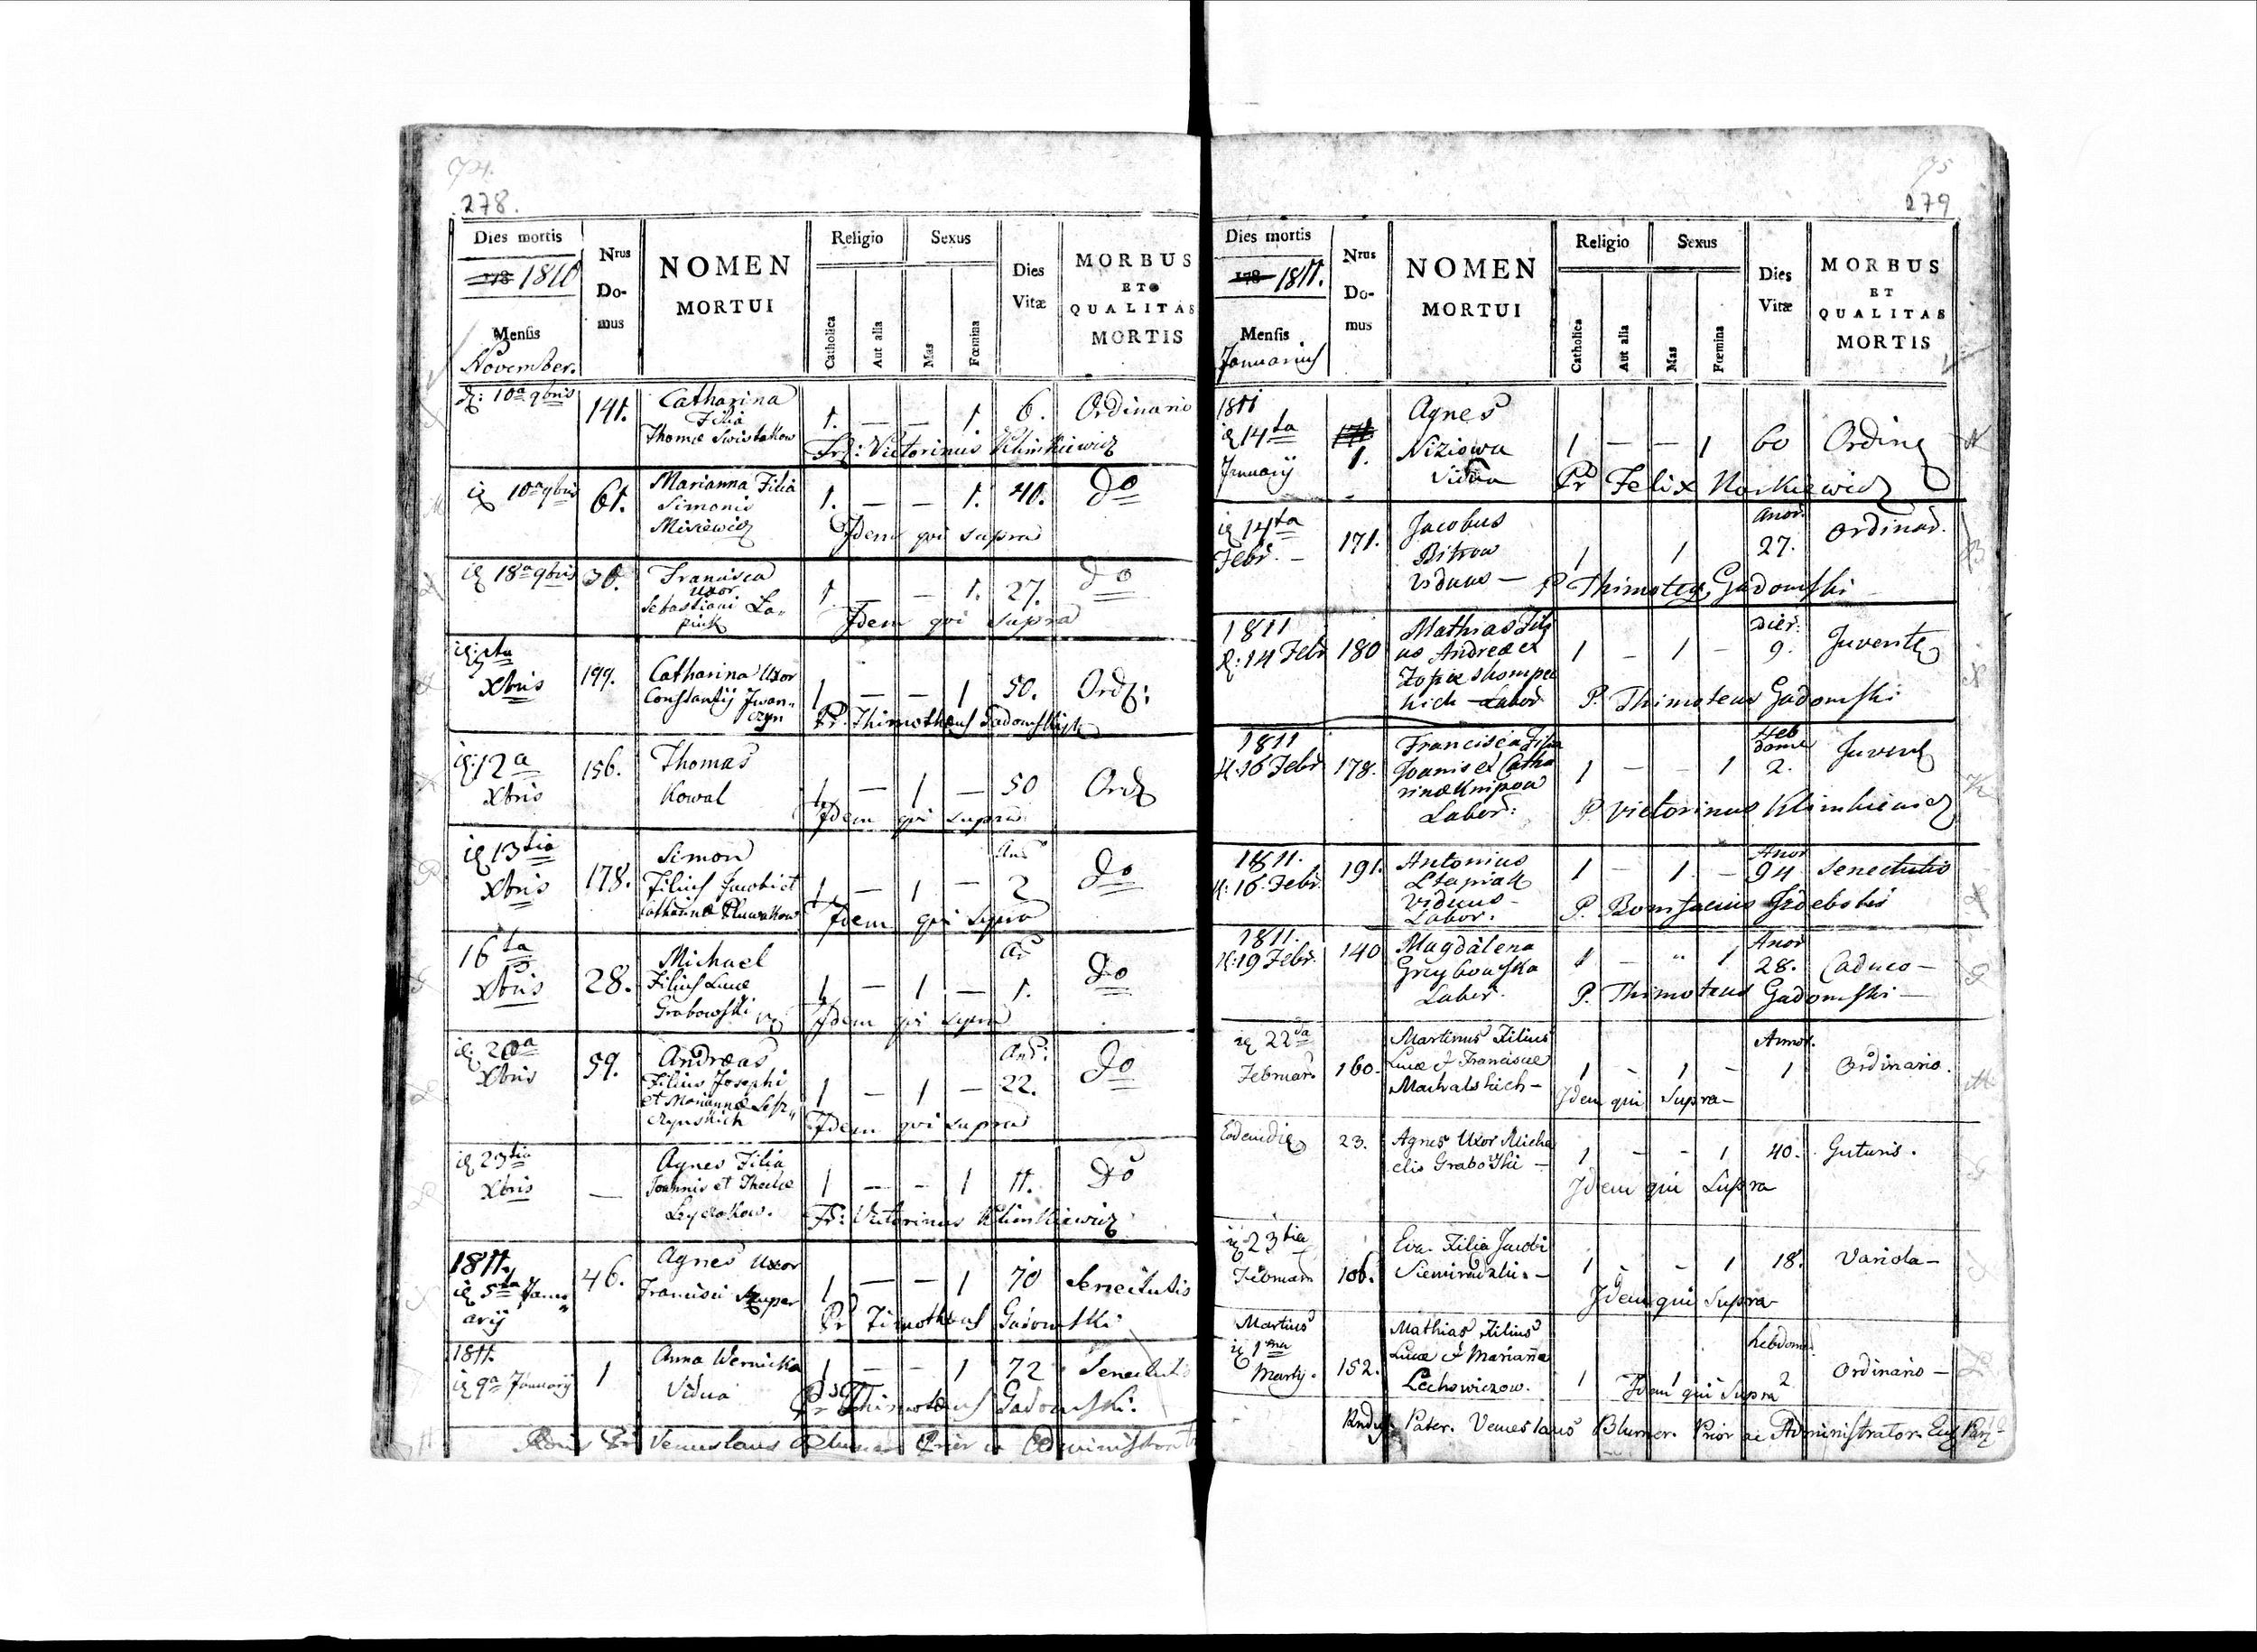 74.
278.
Dies mortis
178 1810
Mensis
November.
Nrus
Do-
mus
NOMEN
MORTUI
Religio
Catholica
Aut alia
Sexus
Mas
Fœmina
Dies
Vitæ
MORBUS
ET
QUALITAS
MORTIS
10a 9bris 141. Catharina 1. — — 1. 6. Ordinario
Filia
Thomæ Swistakow
Fr: Victorinus Klimkiewicz
10a 9bris 61. Marianna Filia 1. — — 1. 40. do
Simonis
Misiewicz
Idem qui supra
18a 9bris 30. Francisca 1 — — 1. 27. do
uxor
Sebastiani La„
piuk
Idem qui supra
Xbris 199. Catharina Uxor 1 — — 1 50. Ord:
Constantij Iwan„
czyn
Pr. Thimotheus Gadomski
12a 156. Thomas 1 — 1 — 50 Ord
Xbris Kowal
Idem qui supra
13tia 178. Simon 1 — 1 — 2 do
Xbris Filius Jacobi et
Catharinæ
Idem qui supra
16ta 28. Michael 1 — 1 — 1. do
Xbris Filius Lucæ
Grabowski
Idem qui supra
20a 59. Andreas 1 — 1 — 22. do
Xbris Filius Josephi
et Mariannæ Lesz„
czynskich
Idem qui supra
23tia — Agnes Filia 1 — — 1 11. do
Xbris Joannis et Theclæ
Fr: Victorinus Klimkiewicz
1811. 46. Agnes Uxor 1 — — 1 70 Senectutis
5ta Janu„ Francisci
arij
Pr Timotheus Gadomski
1811. 1 Anna Wernicka 1 — — 1 72 Senectutis
9a Januarij Vidua
Pr Thimoteus Gadomski.
Venceslaus Prior Administrator
75
279
Dies mortis
178 1811.
Mensis
Januarius
Nrus
Do-
mus
NOMEN
MORTUI
Religio
Catholica
Aut alia
Sexus
Mas
Fœmina
Dies
Vitæ
MORBUS
ET
QUALITAS
MORTIS
1811
14ta 1. Agnes 1 — — 1 60 Ordin
Januarij Niziowa
Vidua
Pr Felix Norkiewicz
14ta 171. Jacobus 1 1 Anor. 27. Ordinar.
Febr. — Bitrow
Viduus —
P Thimoteus Gadomski
1811 180 Mathias Fili 1 — 1 — Dier. 9. Juvent
14 Febr us Andreæ et
Zofiæ
Labor
P. Thimoteus Gadomski
1811 178. Francisca Filia 1 — — 1 Heb
16 Febr Joanis et Catha domæ
rinæ Knipow 2. Juvent
Labor:
P Victorinus Klimkiewicz
1811. 191. Antonius 1 — 1 — Anor 94 Senectutis
16. Febr. Stapiak
Viduus —
Labor.
P. Bonifacius
1811. 140 Magdalena 1 — „ 1 Anor 28. Caduco —
19 Febr. Grzybowska
Labor.
P. Thimoteus Gadomski —
22da 160. Martinus Filius 1 - 1 - Annor. 1 Ordinario.
Februar. Lucæ et Franciscæ
Machalskich —
Idem qui Supra —
Eodem die 23. Agnes Uxor Micha 1 - - 1 40. Guturis.
elis Grabowski —
Idem qui Supra
23tia 106. Eva Filia Jacobi 1 - - 1 18. Variola —
Februar
Idem qui Supra
Martius
1ma 152. Mathias Filius 1 1 hebdom. 2 Ordinario —
Martij. Lucæ et Mariañæ
Lechowiczow.
Idem qui Supra
Rndus Pater. Venceslaus Blumer. Prior ac Administrator